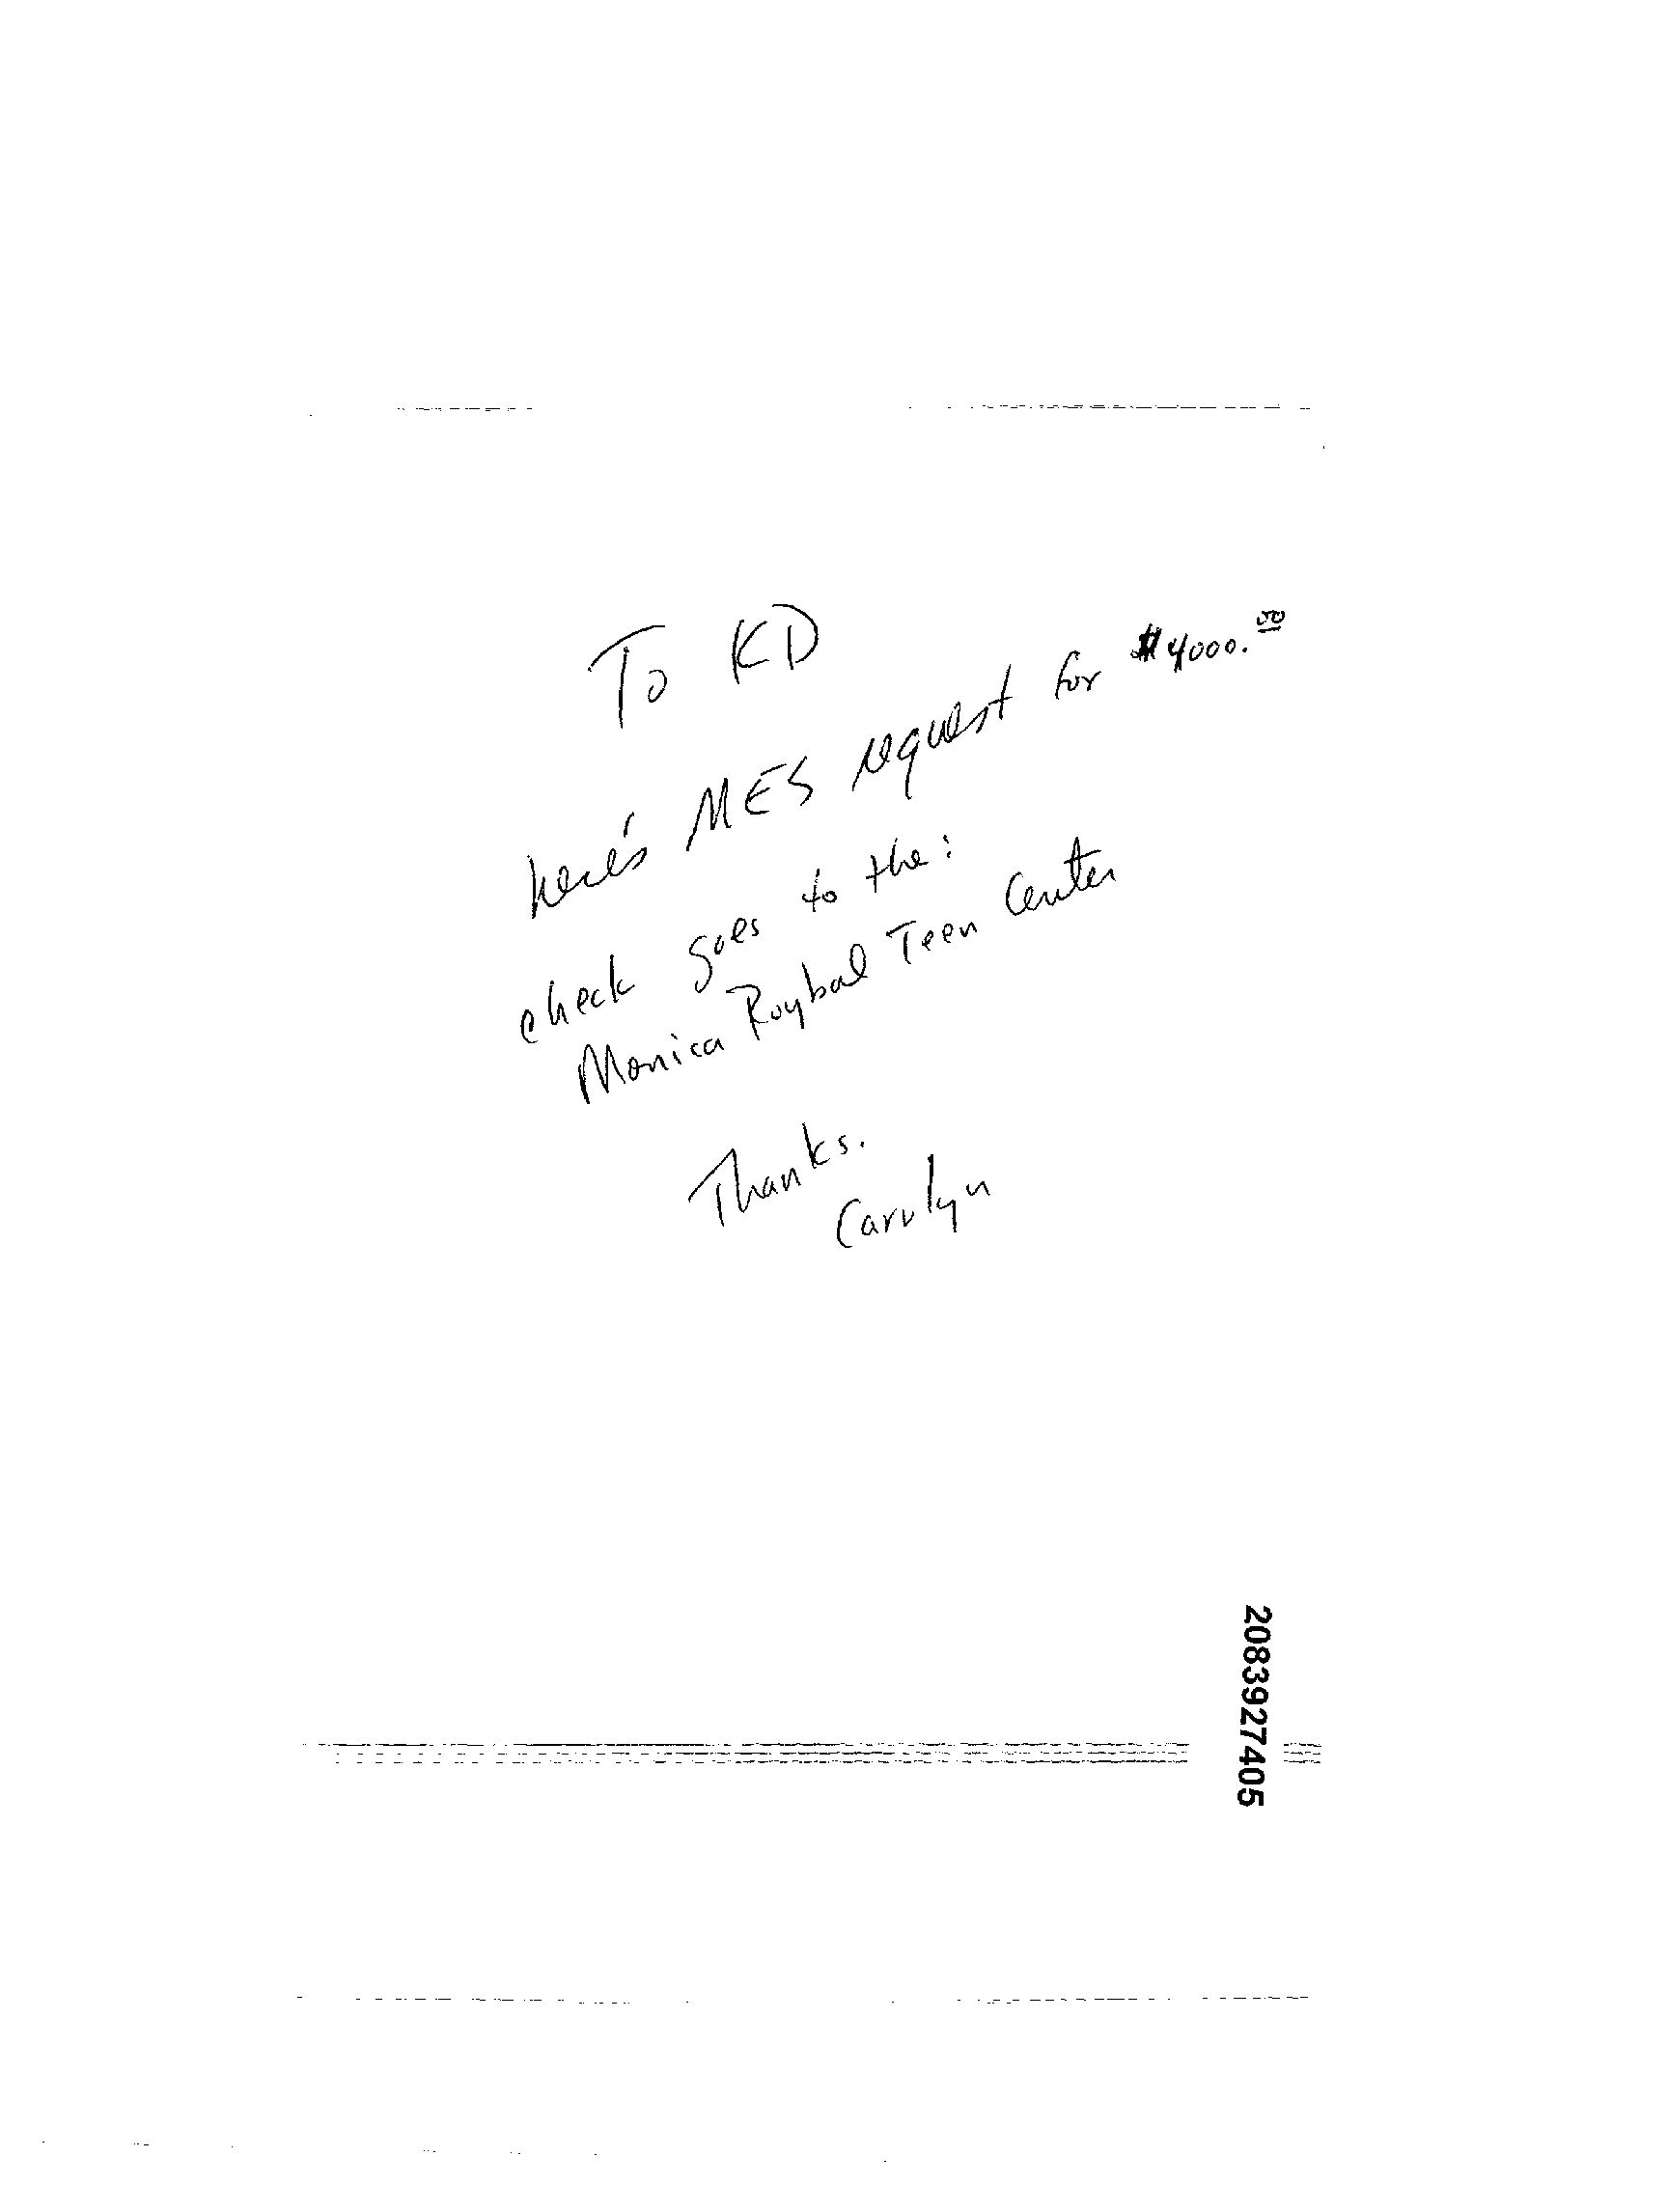 To KD
here's MES request for $4000.00
check goes to the:
Monica Roybal Teen Center
Thanks.
Carolyn
2083927405